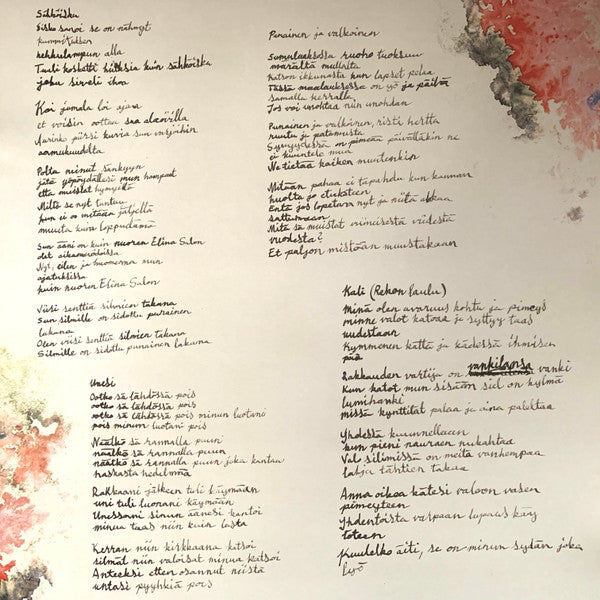 Sähköisku
Sisko sanoi se on nähnyt
kummituksen
hehkulampun alla
Tuuli kosketti hiuksia kuin sähköisku
joka siveli ihoa
Koi jumala loi ajan
et voisin oottaa saa alaovilla
Aurinko piirsi kuvia sun varjoihin
aamukuudelta
Polta minut sänkyyn
jätä yöpöydällesi mun hampaat
että muistat hymyillä
Miltä se nyt tuntuu
kun ei oo mitään jäljellä
muuta kuin loppuelämä
Sun ääni on kuin nuoren Elina Salon
det aikameröidossä
Nyt, eilen ja huomenna mun
ajatuksissa
kuin nuoren Elina Salon
Viisi senttiä silmien takana
Sun silmille on sidottu punainen
lakana
Olen viisi senttiä silmien takana
Silmille on sidottu punainen lakana
Unesi
Ootko sä lähdössä pois
ootko sä lähdössä pois
ootko sä lähdössä pois minun luotani
pois minun luotani pois
Näätkö sä rannalla puun
näätkö sä rannalla puun
näätkö sä rannalla puun joka kantaa
raskasta hedelmää
Rakkaani jälkeen tuli käymään
uni tuli luonani käymään
Unessani sinun äänesi kantoi
minua taas niin kuin lasta
Kerran niin kirkkaana katsoi
silmät niin valoisat minua katsoi
Anteeksi etten osannut niistä
untasi pyyhkiä pois
Punainen ja valkoinen
Sumulaaksossa ruoho tuoksuu
märältä mullalta
Katson ikkunasta kun lapset pelaa
Tässä maalauksessa on yö ja päivä
samalla kerralla
Jos voi unohtaa niin unohdan
Punainen ja valkoinen, risti hertta
ruutu ja patamusta
Syvyydessä on pimeää päivälläkin ne
ei kuuntele mua
Ne tietää kaiken muutenkin
Mitään pahaa ei tapahdu kun kannan
huolta jo etukäteen
Entä jos lopetan nyt ja niitä alkaa
sattumaan
Mitä sä muistat viimeisestä viidestä
vuodesta?
Et paljon mistään muustakaan
Kali (Rekon laulu)
Minä olen avaruus kohtu ja pimeys
minne valot katoaa ja syttyy taas
uudestaan
Kymmenen kättä ja kädessä ihmisen
pää
Rakkauden vartija on vankilansa vanki
Kun katot mun sisään siel on kylmä
lumihanki
missä kynttilät palaa ja aina palettaa
Yhdestä kuunnellaen
kun pieni nauraen nukahtaa
Väl silimissä on meitä vanhempaa
lahja tähtien takaa
Anna oikea kätesi valoon vasen
pimeyteen
Yhdentoista varpaan lupaus käy
toteen
Kuuletko äiti, se on minun sydän joka
lyö